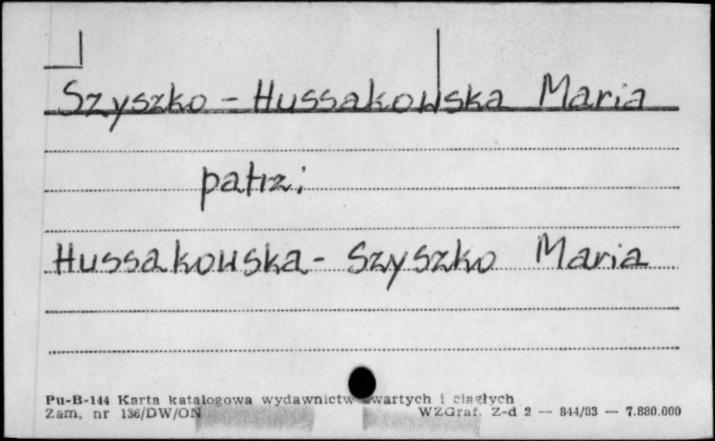 Szyszko - Hussakowska Maria
patrz:
Hussakowska - Szyszko Maria
Pu-B-144 Karta katalogowa wydawnictw zwartych i ciągłych
Zam. nr 136/DW/ON WZGraf. Z-d 2 — 844/83 — 7.880.000